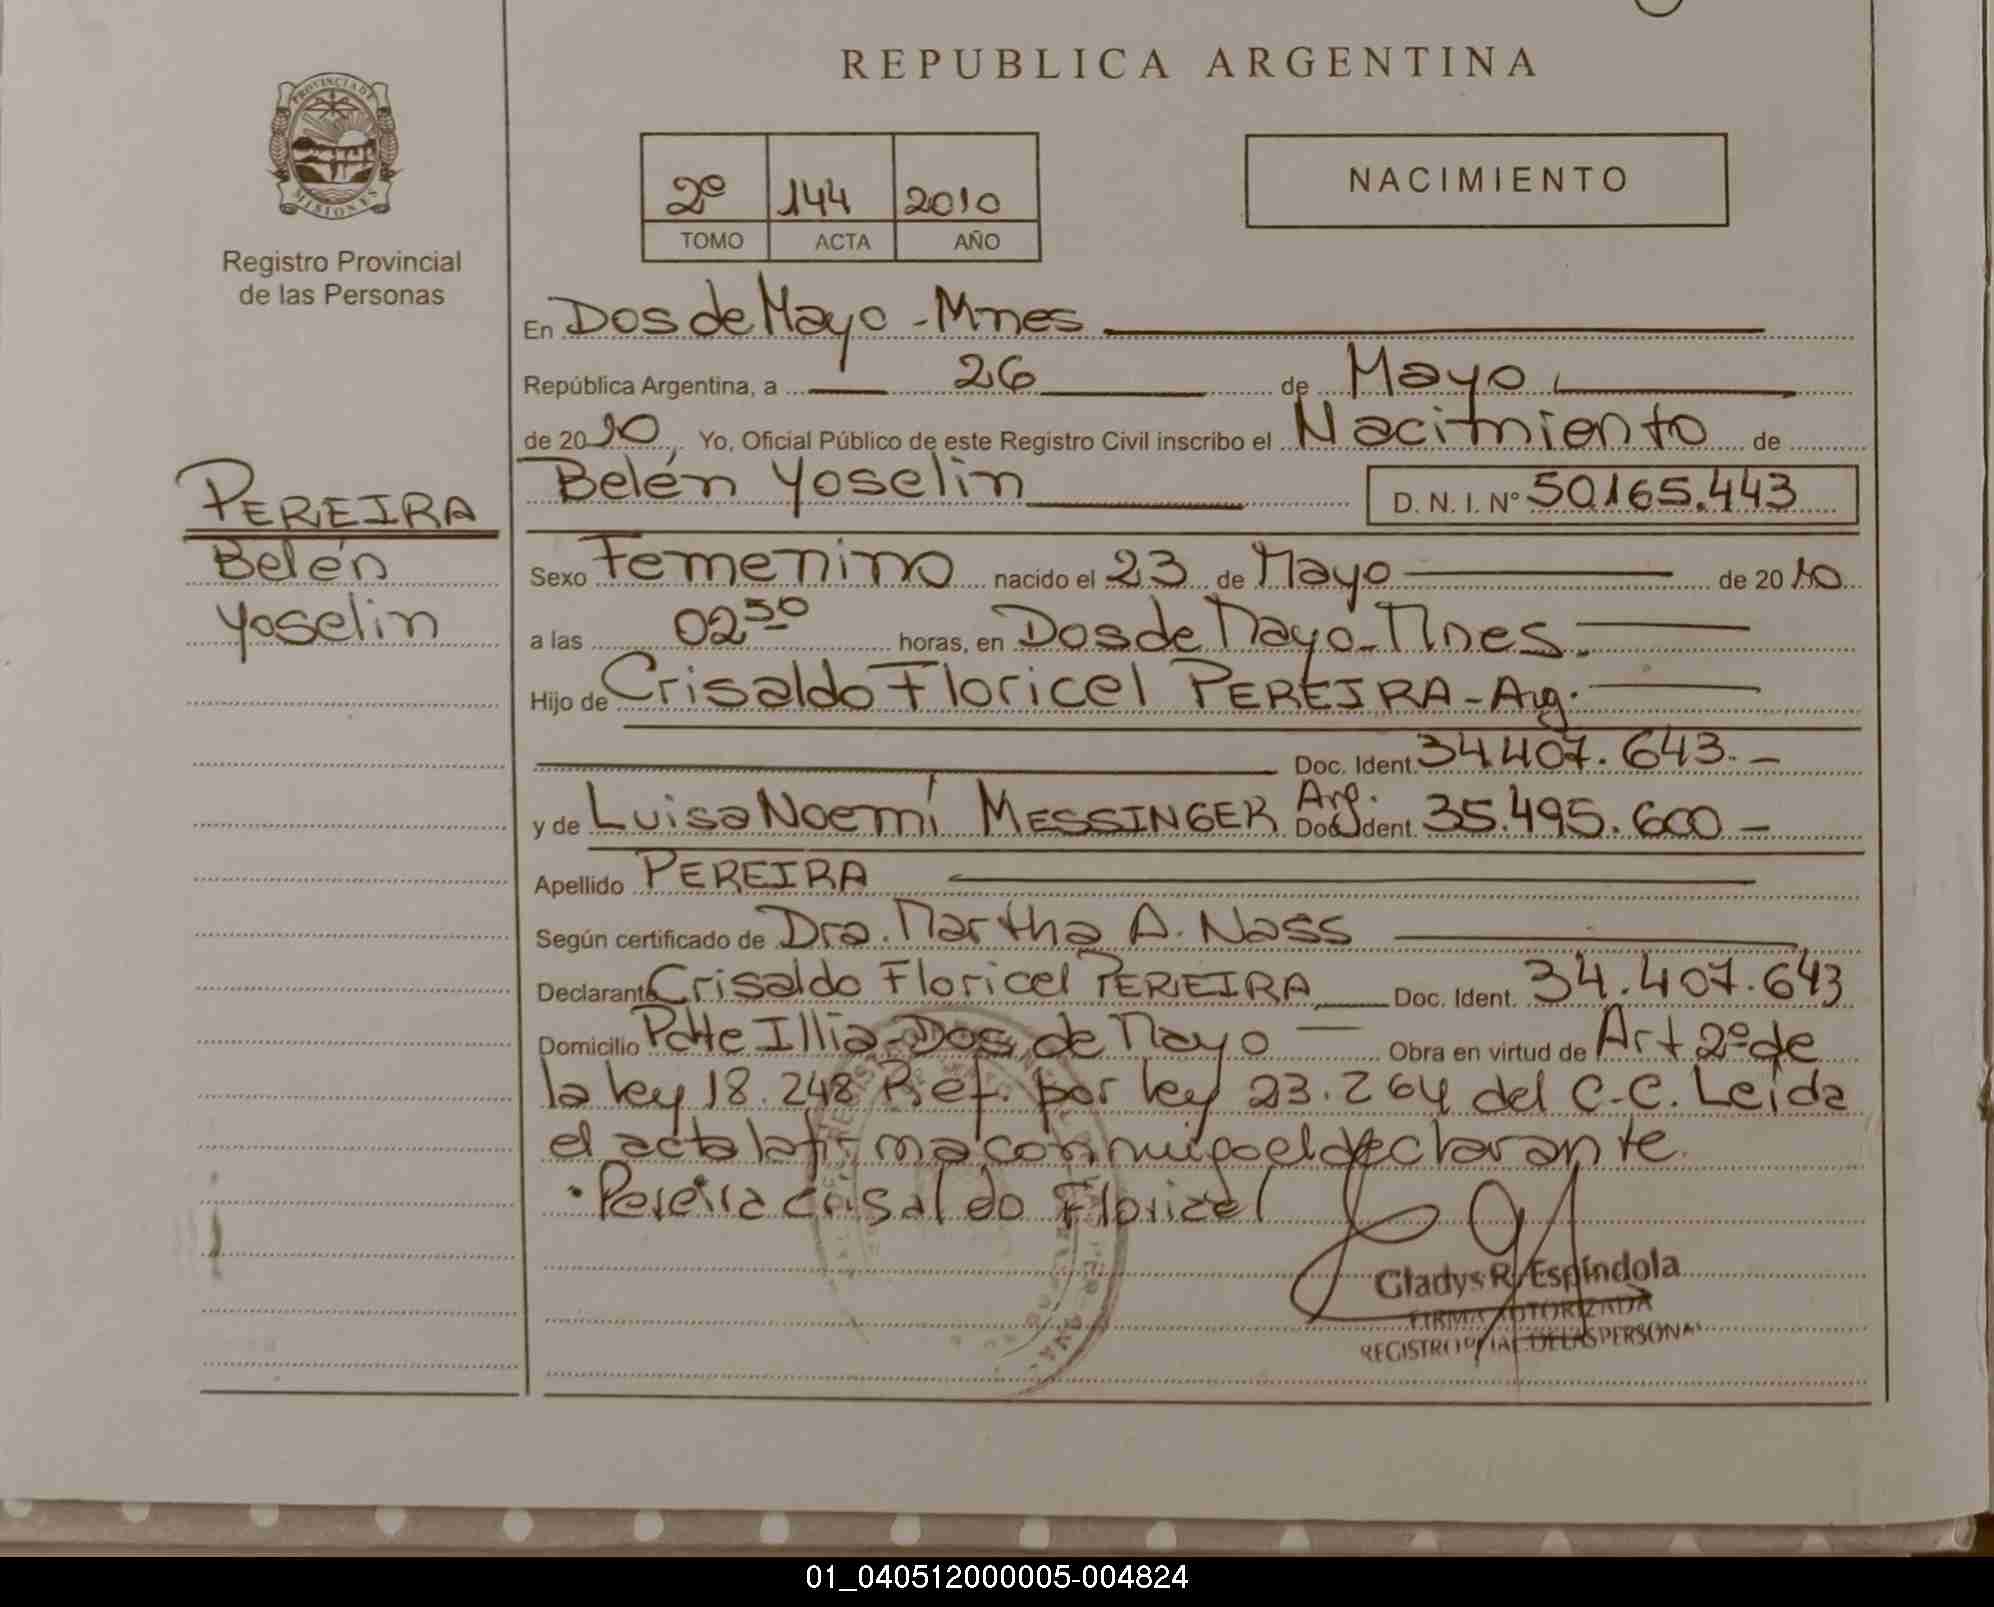 REPUBLICA ARGENTINA
PROVINCIA DE
MISIONES
Registro Provincial
de las Personas
2º 144 2010
TOMO ACTA AÑO
NACIMIENTO
En Dos de Mayo - Mnes
República Argentina, a 26 de Mayo
de 2010, Yo, Oficial Público de este Registro Civil inscribo el Nacimiento de
Belén Yoselin D. N. I. Nº 50.165.443
PEREIRA
Belén
Yoselin
Sexo Femenino nacido el 23 de Mayo de 2010
a las 02 50 horas, en Dos de Mayo - Mnes.
Hijo de Crisaldo Floricel PEREIRA - Arg.
Doc. Ident. 34.407.643.-
y de Luisa Noemí MESSINGER Arg. Doc. Ident. 35.495.600 -
Apellido PEREIRA
Según certificado de Dra. Martha A. Nass
Declarante Crisaldo Floricel PEREIRA Doc. Ident. 34.407.643
Domicilio Pdte Illia - Dos de Mayo - Obra en virtud de Art 2º de
la ley 18.248 Ref. por ley 23.264 del C.C. Leída
el acta la firma conmigo el declarante.
Pereira Crisaldo Floricel
Gladys R. Espíndola
FIRMA AUTORIZADA
REGISTRO PCIAL. DE LAS PERSONAS
01_040512000005-004824